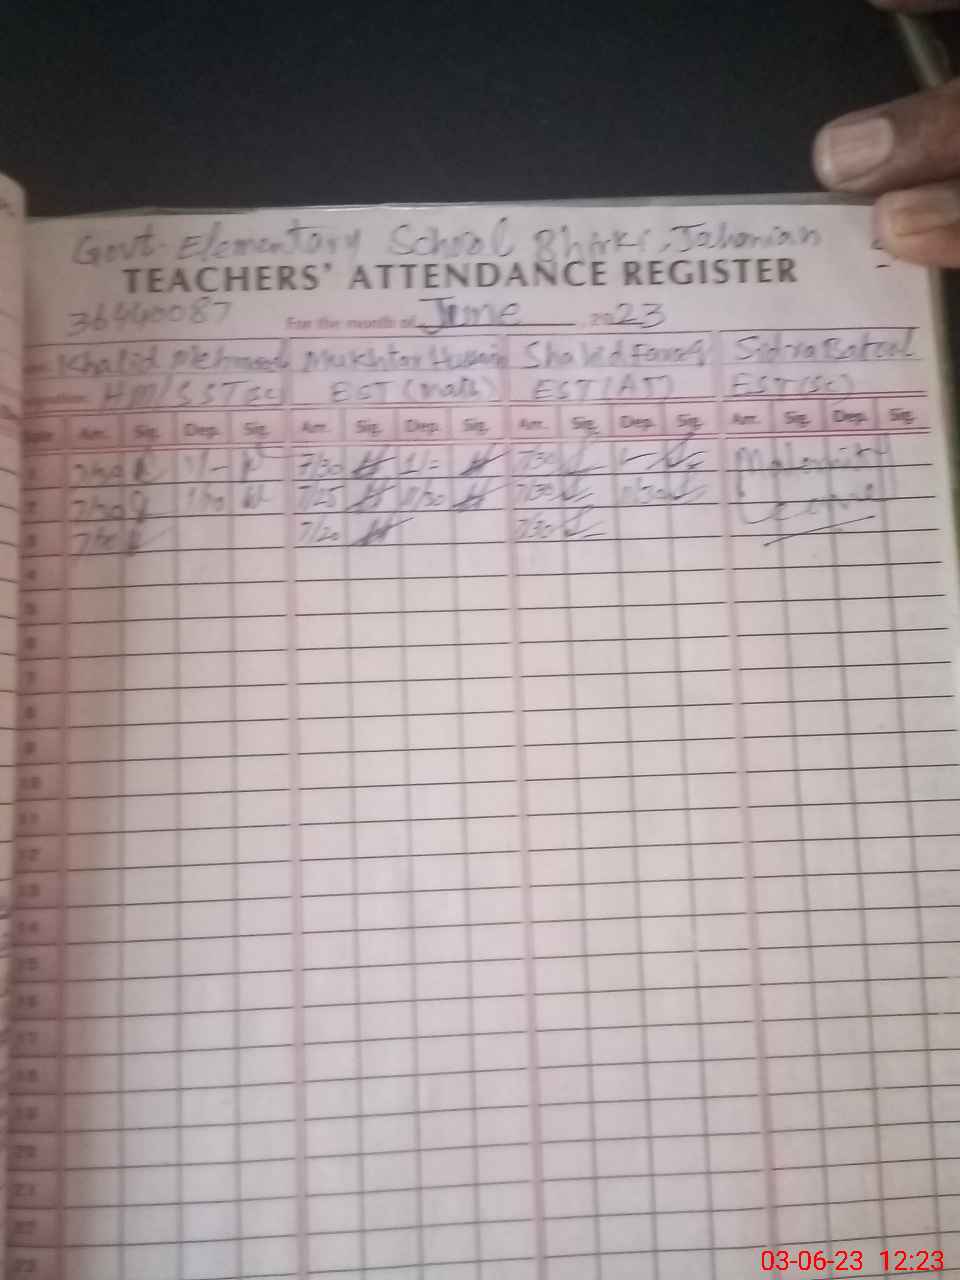 Govt. Elementary School Bhirki, Jahanian
TEACHERS' ATTENDANCE REGISTER
36440087 For the month of June, 2023
Khalid Mehmood Mukhtar Hussain Shahid Farooq Sidra Batool
HM/SST(Sc) EST (Math) EST (AT) EST (Sc)
Arr. Sig. Dep. Sig. Arr. Sig. Dep. Sig. Arr. Sig. Dep. Sig. Arr. Sig. Dep. Sig.
1 7/30 1/- 7/30 1/= 7/30 Maternity
2 7/30 7/25 11/30 7/30 11/30 Leave
3 7/20 7/30
4
5
6
7
8
9
10
11
12
13
14
15
16
17
18
19
20
21
22
23
03-06-23 12:23